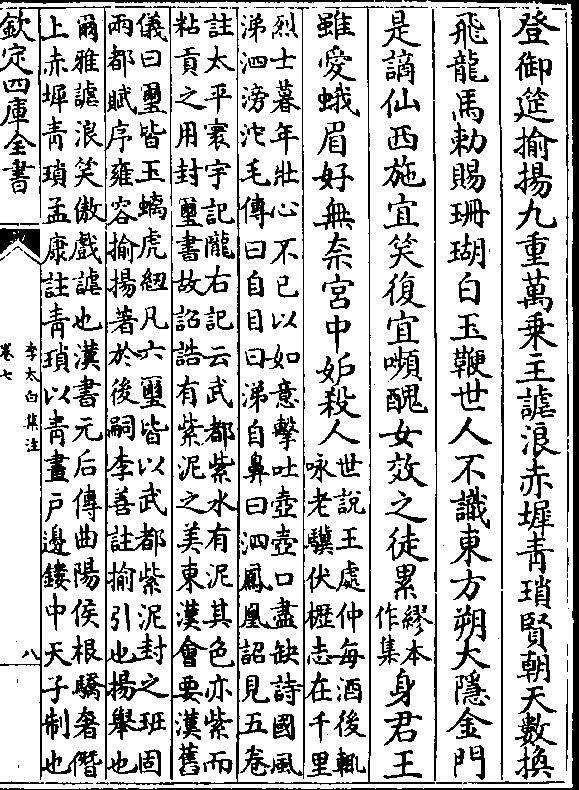 登御筵揄揚九重萬乗主謔浪赤墀青瑣賢朝天數換
飛龍馬勅賜珊瑚白玉鞭世人不識東方朔大隱金門
是謫仙西施宜笑復宜嚬醜女效之徒累
繆本
作集
身君王
雖愛蛾眉好無奈宮中妒殺人
世說王處仲每酒後輒
咏老驥伏櫪志在千里
烈士暮年壯心不已以如意擊吐壺壺口盡缺詩國風
涕泗滂沱毛傳曰自目曰涕自鼻曰泗鳳凰詔見五卷
註太平寰宇記隴右記云武都紫水有泥其色亦紫而
粘貢之用封璽書故詔誥有紫泥之美東漢會要漢舊
儀曰璽皆玉螭虎紐凡六璽皆以武都紫泥封之班固
兩都賦序雍容揄揚著於後嗣李善註揄引也揚舉也
爾雅謔浪笑傲戲謔也漢書元后傳曲陽侯根驕奢僭
上赤墀青瑣孟康註青瑣以青畫戶邊鏤中天子制也
欽定四庫全書
李太白集注
卷七
八